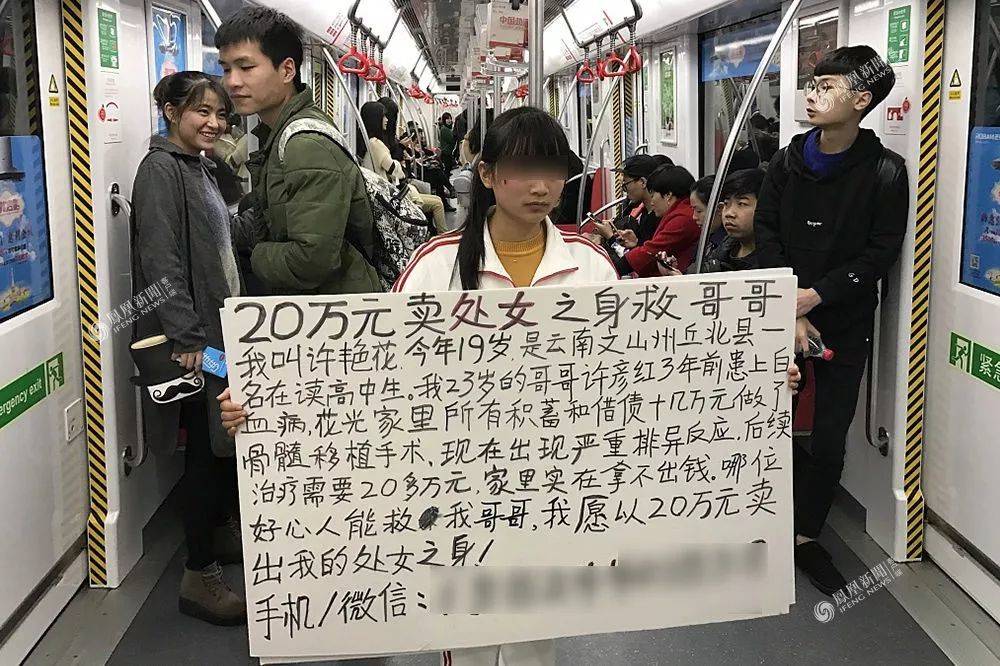 20万元卖处女之身救哥哥
我叫许艳花,今年19岁,是云南文山州丘北县一
名在读高中生。我23岁的哥哥许彦红3年前患上白
血病,花光家里所有积蓄和借债十几万元做了
骨髓移植手术,现在出现严重排异反应,后续
治疗需要20多万元,家里实在拿不出钱。哪位
好心人能救我哥哥,我愿以20万元卖
出我的处女之身!
手机/微信:
凤凰新聞
IFENG NEWS
凤凰新聞
IFENG NEWS
凤凰新聞
IFENG NEWS
Emergency exit
紧急